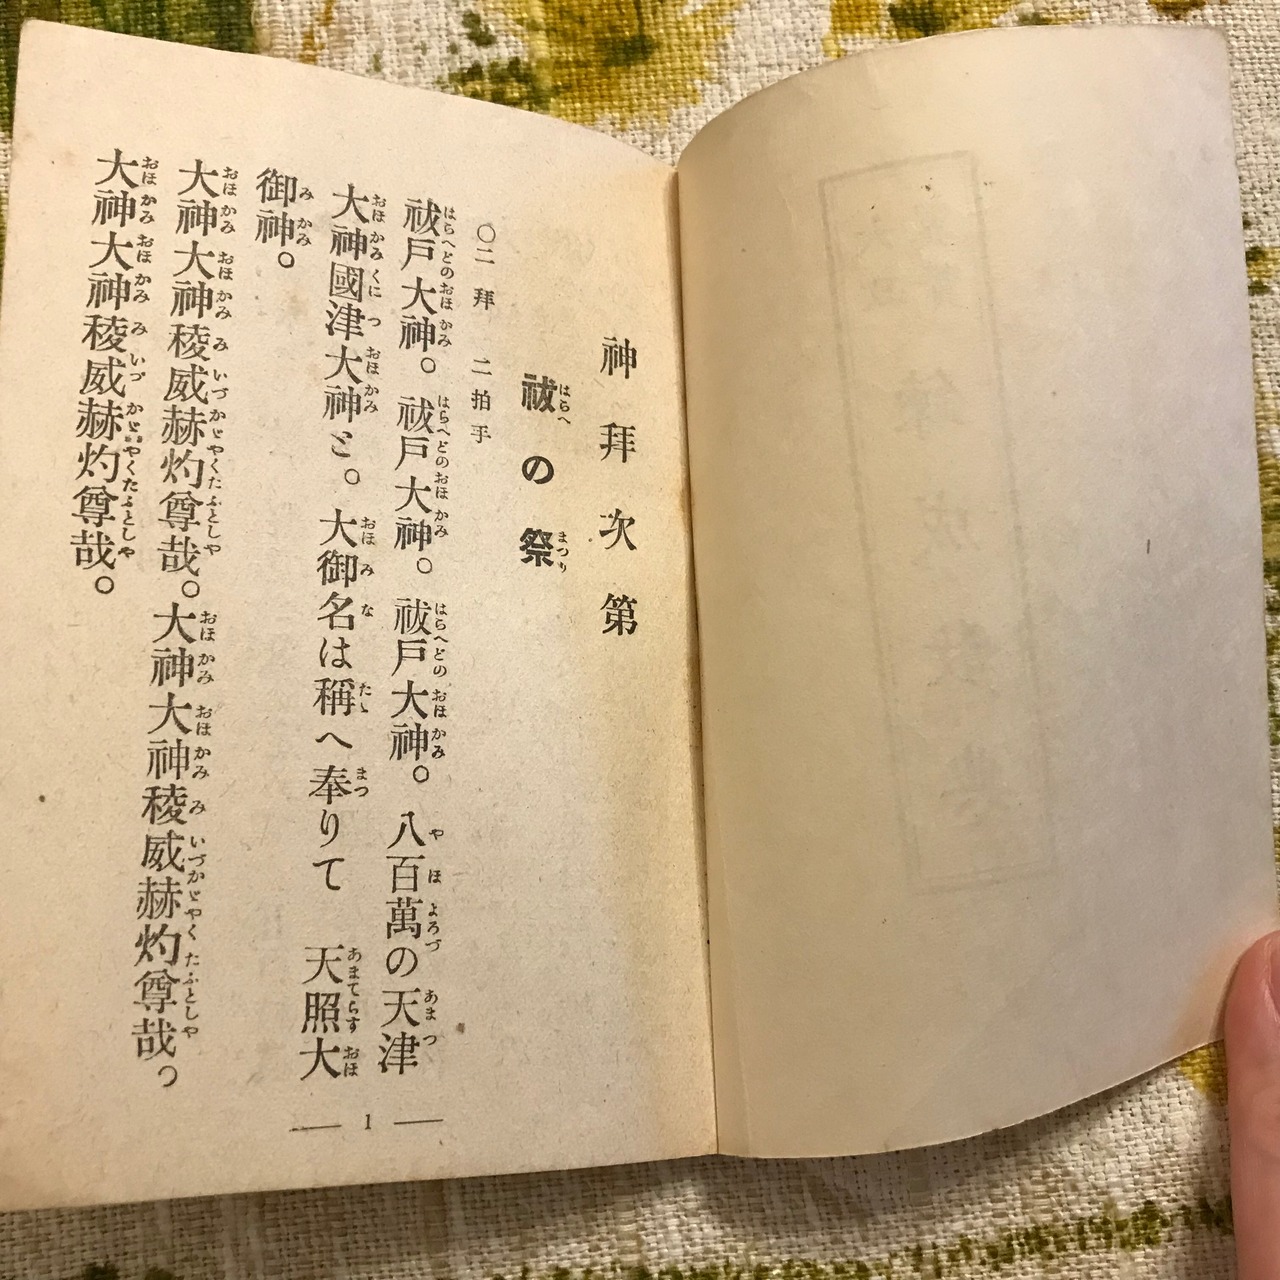 神拜次第
祓の祭
〇二拜 二拍手
祓戸大神。祓戸大神。祓戸大神。八百萬の天津
大神國津大神と。大御名は稱へ奉りて 天照大
御神。
大神大神稜威赫灼尊哉。大神大神稜威赫灼尊哉。
大神大神稜威赫灼尊哉。
1